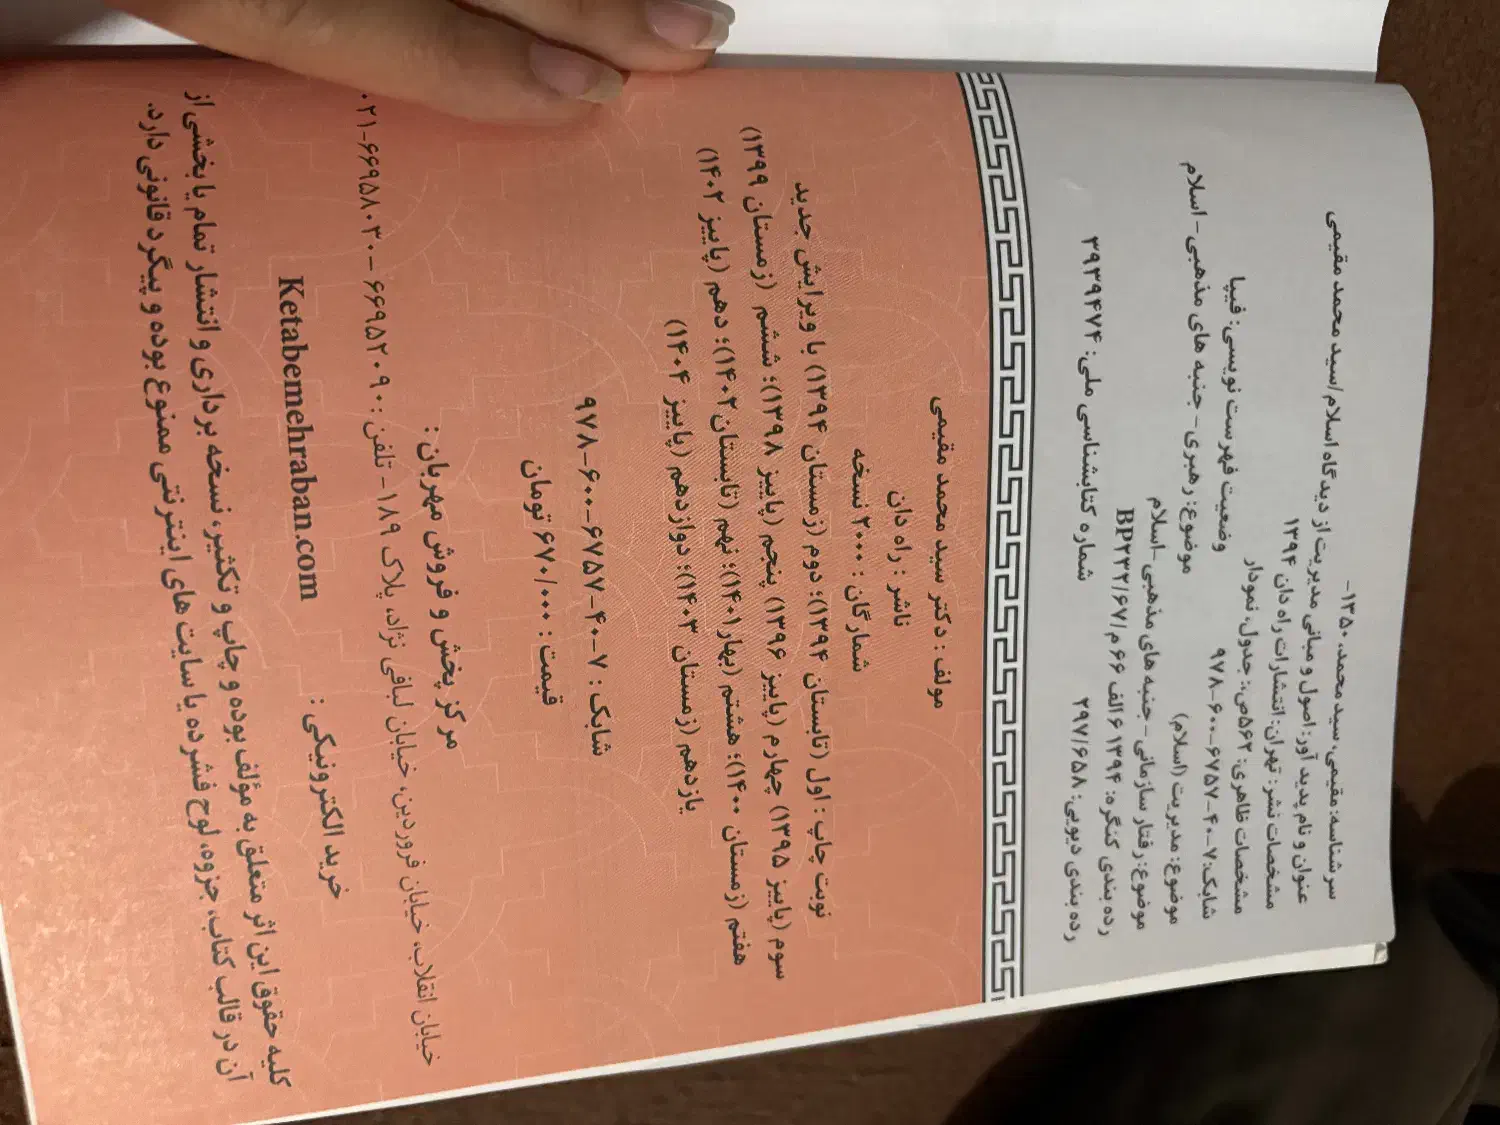 سرشناسه: مقیمی، سید محمد، ۱۳۵۰-
عنوان و نام پدید آور: اصول و مبانی مدیریت از دیدگاه اسلام/سید محمد مقیمی
مشخصات نشر: تهران: انتشارات راه دان ۱۳۹۴
مشخصات ظاهری: ۵۶۲ص: جدول، نمودار
شابک: ۷-۴۰-۶۷۵۷-۶۰۰-۹۷۸
وضعیت فهرست نویسی: فیپا
موضوع: مدیریت (اسلام)
موضوع: رهبری - جنبه های مذهبی - اسلام
موضوع: رفتار سازمانی - جنبه های مذهبی -اسلام
رده بندی کنگره: ۱۳۹۴ ۶ الف ۶۶ م/BP۲۳۲/۶۷
رده بندی دیویی: ۲۹۷/۶۵۸
شماره کتابشناسی ملی: ۳۹۳۹۴۷۴
مولف : دکتر سید محمد مقیمی
ناشر : راه دان
شمارگان : ۲۰۰۰ نسخه
نوبت چاپ : اول (تابستان ۱۳۹۴)؛ دوم (زمستان ۱۳۹۴) با ویرایش جدید
سوم (پاییز ۱۳۹۵) چهارم (پاییز ۱۳۹۶) پنجم (پاییز ۱۳۹۸)؛ ششم (زمستان ۱۳۹۹)
هفتم (زمستان ۱۴۰۰)؛ هشتم (بهار۱۴۰۱)؛ نهم (تابستان۱۴۰۲)؛ دهم (پاییز ۱۴۰۲)
یازدهم (زمستان ۱۴۰۳)؛ دوازدهم (پاییز ۱۴۰۴)
شابک : ۷-۴۰-۶۷۵۷-۶۰۰-۹۷۸
قیمت : ۶۷۰/۰۰۰ تومان
مرکز پخش و فروش مهربان :
خیابان انقلاب، خیابان فروردین، خیابان لبافی نژاد، پلاک ۱۸۹- تلفن : ۶۶۹۵۲۰۹۰ - ۰۲۱-۶۶۹۵۸۰۳۰
خرید الکترونیکی :
Ketabemehraban.com
کلیه حقوق این اثر متعلق به مؤلف بوده و چاپ و تکثیر، نسخه برداری و انتشار تمام یا بخشی از
آن در قالب کتاب، جزوه، لوح فشرده یا سایت های اینترنتی ممنوع بوده و پیگرد قانونی دارد.